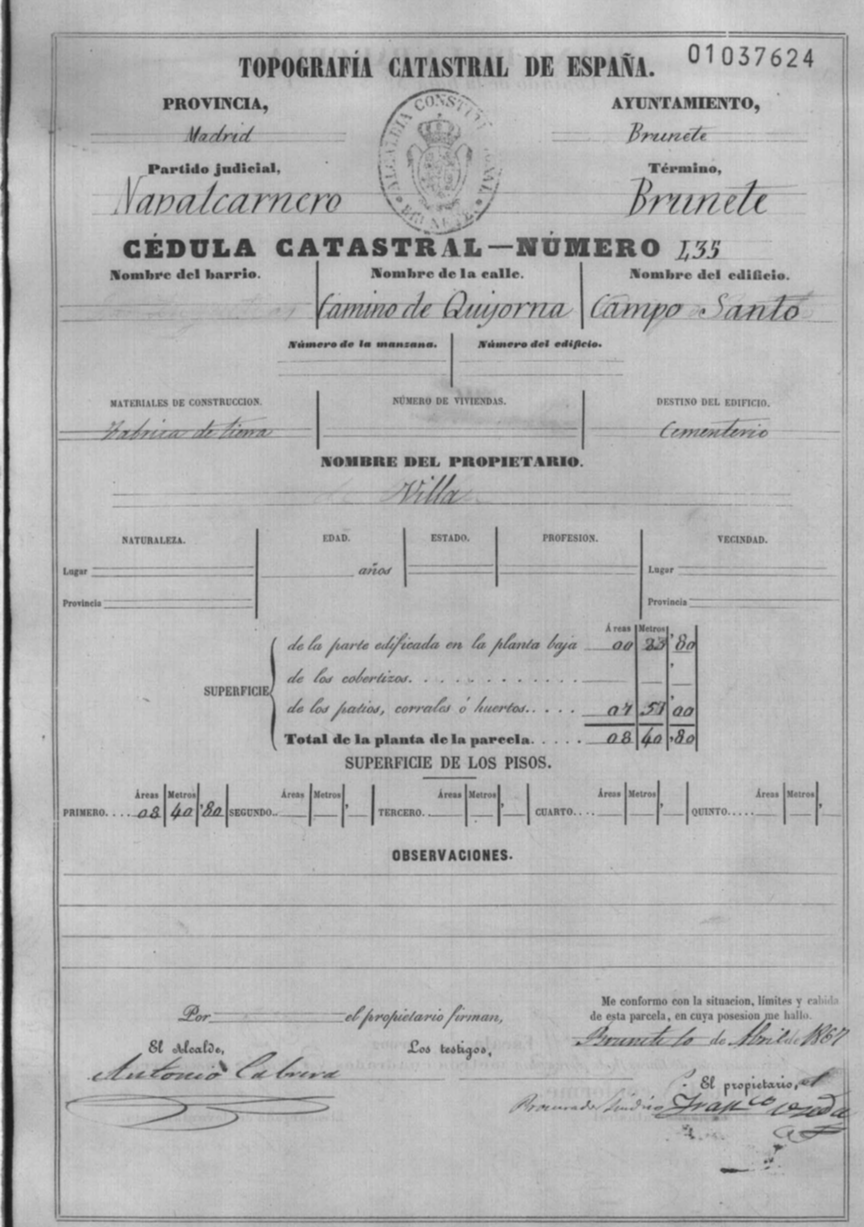 01037624
TOPOGRAFÍA CATASTRAL DE ESPAÑA.
PROVINCIA, AYUNTAMIENTO,
Madrid Brunete
ALCALDIA CONSTITUCIONAL BRUNETE.
Partido judicial, Término,
Navalcarnero Brunete
CÉDULA CATASTRAL—NÚMERO 135
Nombre del barrio. Nombre de la calle. Nombre del edificio.
Camino de Quijorna Campo Santo
Número de la manzana. Número del edificio.
MATERIALES DE CONSTRUCCION. NÚMERO DE VIVIENDAS. DESTINO DEL EDIFICIO.
Fabrica de tierra Cementerio
NOMBRE DEL PROPIETARIO.
Villa
NATURALEZA. EDAD. ESTADO. PROFESION. VECINDAD.
Lugar años Lugar
Provincia Provincia
Áreas Metros
de la parte edificada en la planta baja 00 23,80
de los cobertizos.
SUPERFICIE
de los patios, corrales ó huertos. 00
Total de la planta de la parcela. 08 40,80
SUPERFICIE DE LOS PISOS.
Áreas Metros Áreas Metros Áreas Metros Áreas Metros Áreas Metros
PRIMERO. 08 40,80 SEGUNDO. TERCERO. CUARTO. QUINTO.
OBSERVACIONES.
Me conformo con la situacion, límites y cabida
Por el propietario firman, de esta parcela, en cuya posesion me hallo.
Brunete 10 de Abril de 1867
El Alcalde, Los testigos,
Antonio Cabrera
El propietario, el
Procurador Sindico